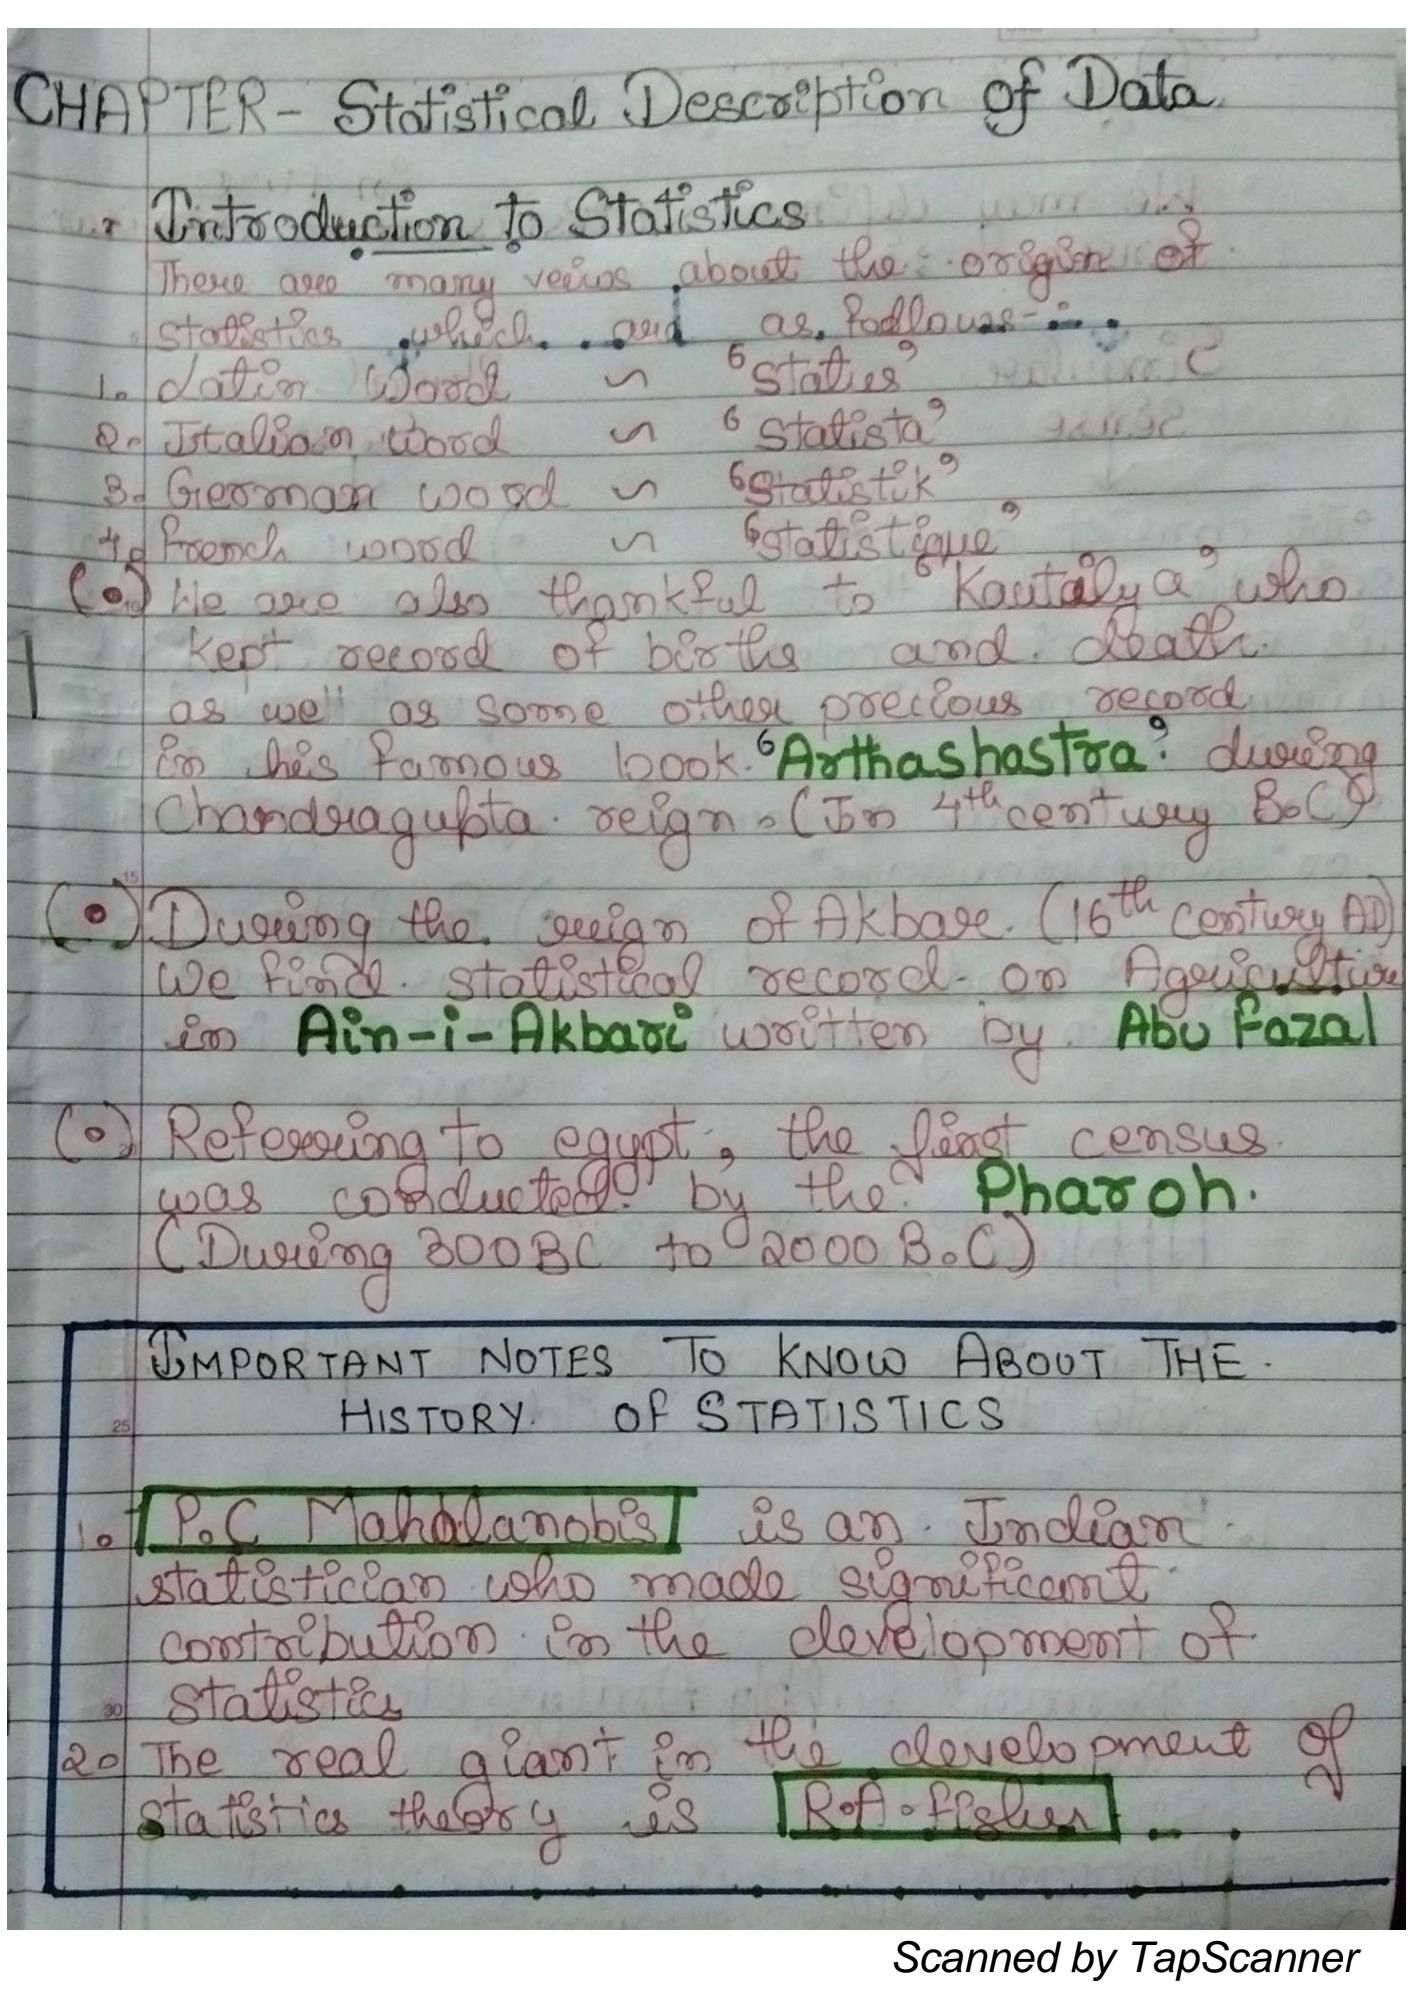 CHAPTER- Statistical Description of Data.
Introduction to Statistics
There are many veiws about the origin of
statistics which are as follows-
1. Latin Word ~ 'Status'
2. Italian word ~ 'Statista'
3. German word ~ 'Statistik'
4. French word ~ 'Statistique'
(•) We are also thankful to 'Kautalya' who
kept record of births and death.
as well as some other precious record
in his famous book 'Arthashastra' during
Chandragupta reign. (In 4th century B.C)
15
(•) During the reign of Akbar. (16th century AD)
We find statistical record on Agriculture
in Ain-i-Akbari written by Abu Fazal
(•) Referring to egypt, the first census
was conducted by the Pharoh.
(During 300 BC to 2000 B.C)
IMPORTANT NOTES TO KNOW ABOUT THE
25 HISTORY OF STATISTICS
1. P.C Mahalanobis is an Indian
statistician who made significant
contribution in the development of
30 statistics
2. The real giant in the development of
statistics theory is R.A. Fisher
Scanned by TapScanner